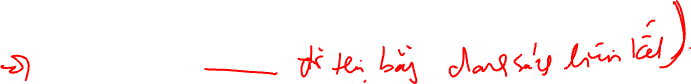 → ____ đồ thị bằng danh sách liên kết).